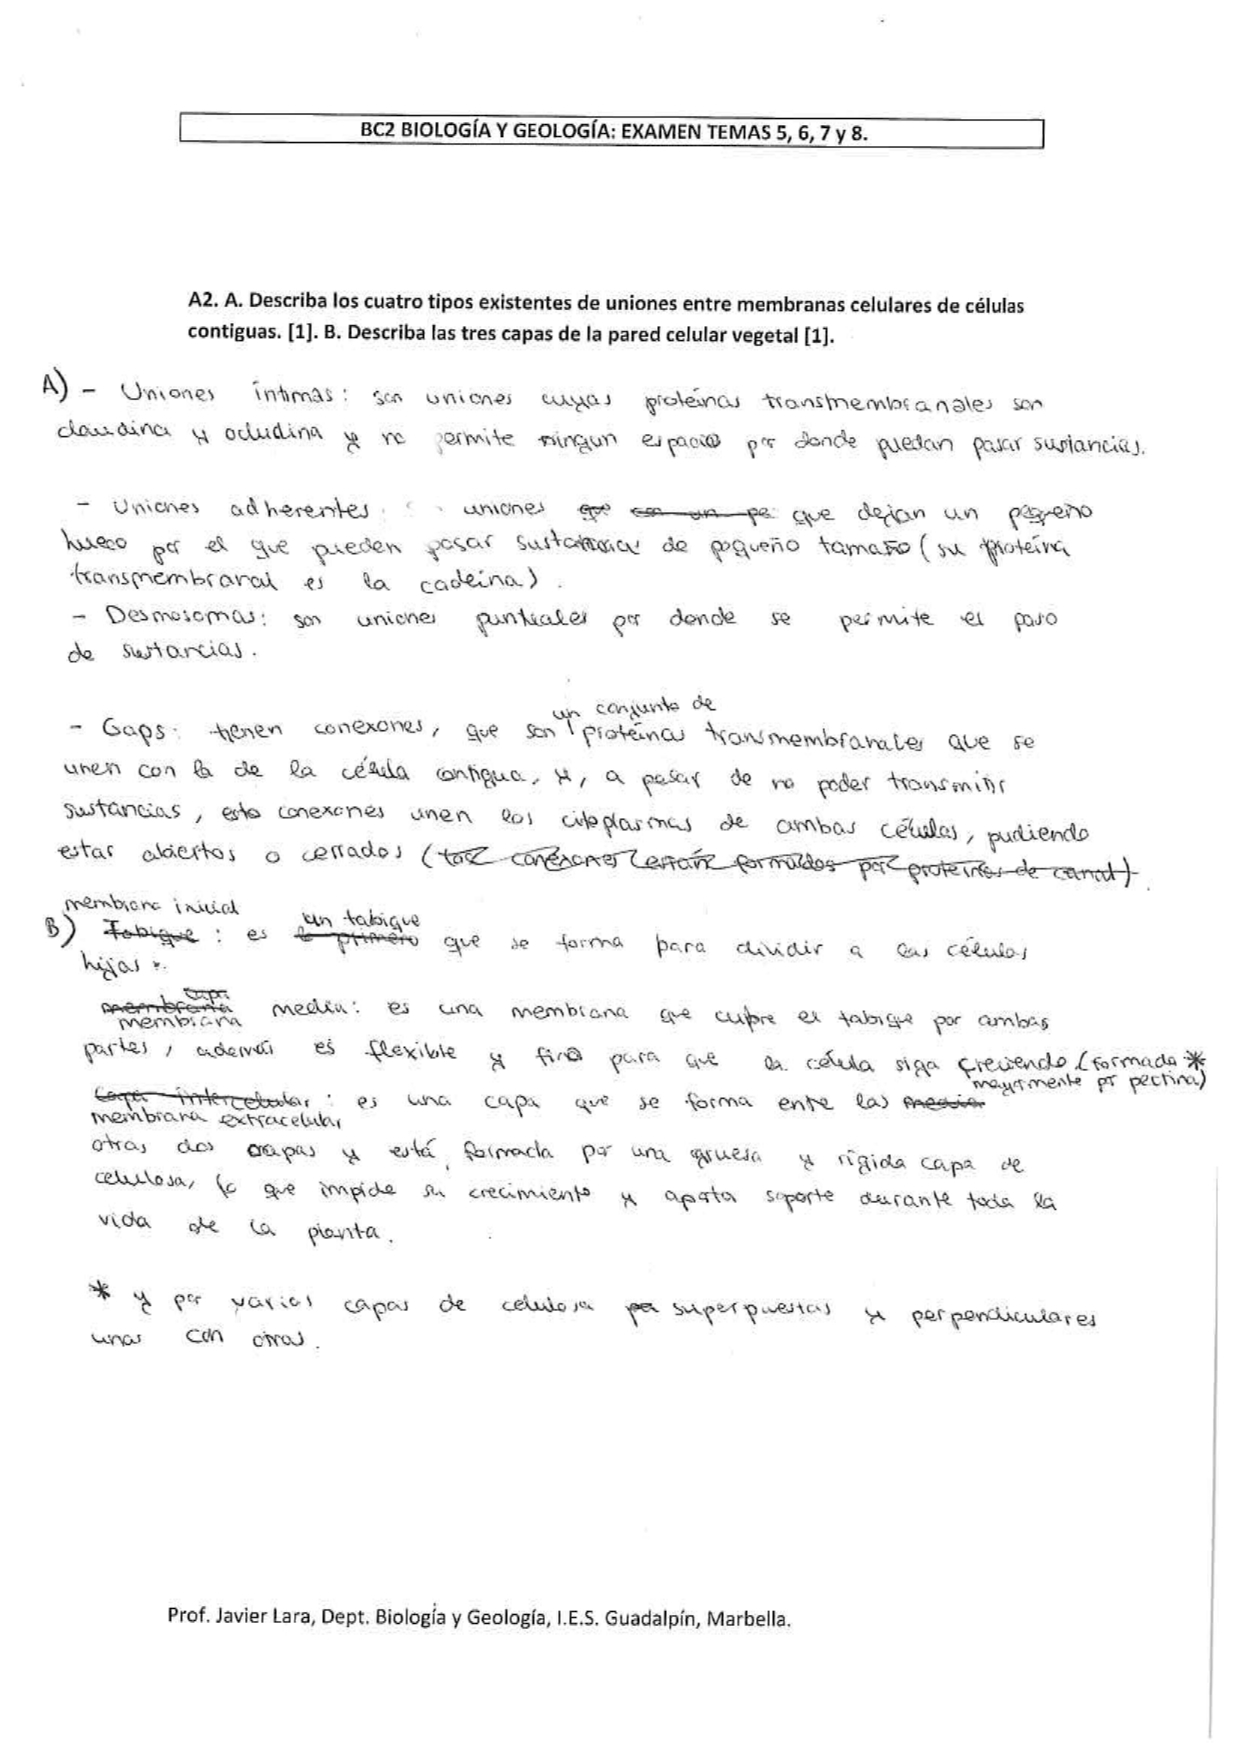 BC2 BIOLOGÍA Y GEOLOGÍA: EXAMEN TEMAS 5, 6, 7 y 8.
A2. A. Describa los cuatro tipos existentes de uniones entre membranas celulares de células
contiguas. [1]. B. Describa las tres capas de la pared celular vegetal [1].
A) - Uniones íntimas: son uniones cuyas proteínas transmembranales son
claudina y ocludina y no permite ningun espacio por donde puedan pasar sustancias.
- Uniones adherentes: uniones que con un pe que dejan un pequeño
hueco por el que pueden pasar sustancias de pequeño tamaño (su proteína
transmembranal es la cadeina).
- Desmosomas: son uniones puntuales por donde se permite el paso
de sustancias.
un conjunto de
- Gaps: tienen conexones, que son proteínas transmembranales que se
unen con la de la célula contigua, y, a pesar de no poder transmitir
sustancias, esto conexones unen los citoplasmas de ambas células, pudiendo
estar abiertos o cerrados (conexones formados por proteínas de canal).
membrana inicial un tabique
B) Tabique: es lo primero que se forma para dividir a las células
hijas.
capa
membrana media: es una membrana que cubre el tabique por ambas
membrana
partes, además es flexible y fina para que la célula siga creciendo (formada *
mayormente por pectina)
Capa intercelular: es una capa que se forma ente las media
membrana extracelular
otras dos capas y está formada por una gruesa y rígida capa de
celulosa, lo que impide su crecimiento y aporta soporte durante toda la
vida de la planta.
* y por varias capas de celulosa por superpuestas y perpendiculares
unas con otras.
Prof. Javier Lara, Dept. Biología y Geología, I.E.S. Guadalpín, Marbella.